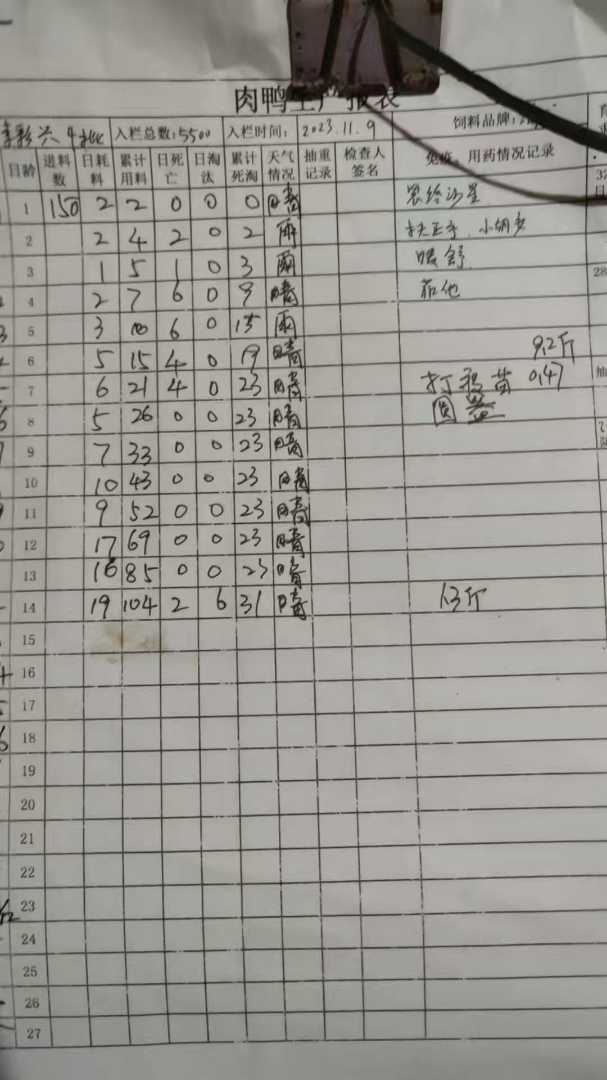 肉鸭生产报表
入栏总数:5500 入栏时间: 2023.11.9 饲料品牌:
日龄 进料数 日耗料 累计用料 日死亡 日淘汰 累计死淘 天气情况 抽重记录 检查人签名 免疫、用药情况记录
1 150 2 2 0 0 0 晴 恩给沙星
2 2 4 2 0 2 雨
3 1 5 1 0 3 雨
4 2 7 6 0 9 晴
5 3 10 6 0 15 雨
6 5 15 4 0 19 晴 9.2斤
7 6 21 4 0 23 晴 0.47
8 5 26 0 0 23 晴
9 7 33 0 0 23 晴
10 10 43 0 0 23 晴
11 9 52 0 0 23 晴
12 17 69 0 0 23 晴
13 16 85 0 0 23 晴
14 19 104 2 6 31 晴 13斤
15
16
17
18
19
20
21
22
23
24
25
26
27